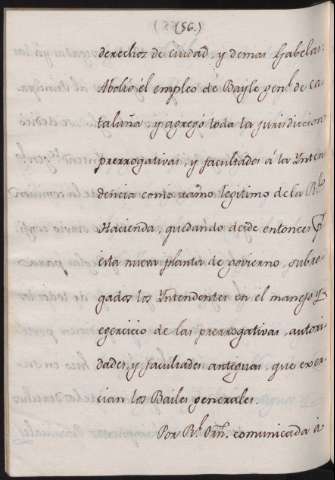 (56.)
derechos de ciudad, y demas Gabelas.
Abolió el empleo de Bayle gen.l de Ca
taluña, y agregó toda la jurisdiccion
prerrogativas, y facultades á la Ynten
dencia como ramo legitimo de la R.l
Hacienda, quedando desde entonces
esta nueva planta de govierno, subro
gados los Yntendentes en el manejo y
egercicio de las prerrogativas, autori
dades, y facultades antiguas, que exer
cian los Bailes generales.
Por R.l Orn. comunicada á